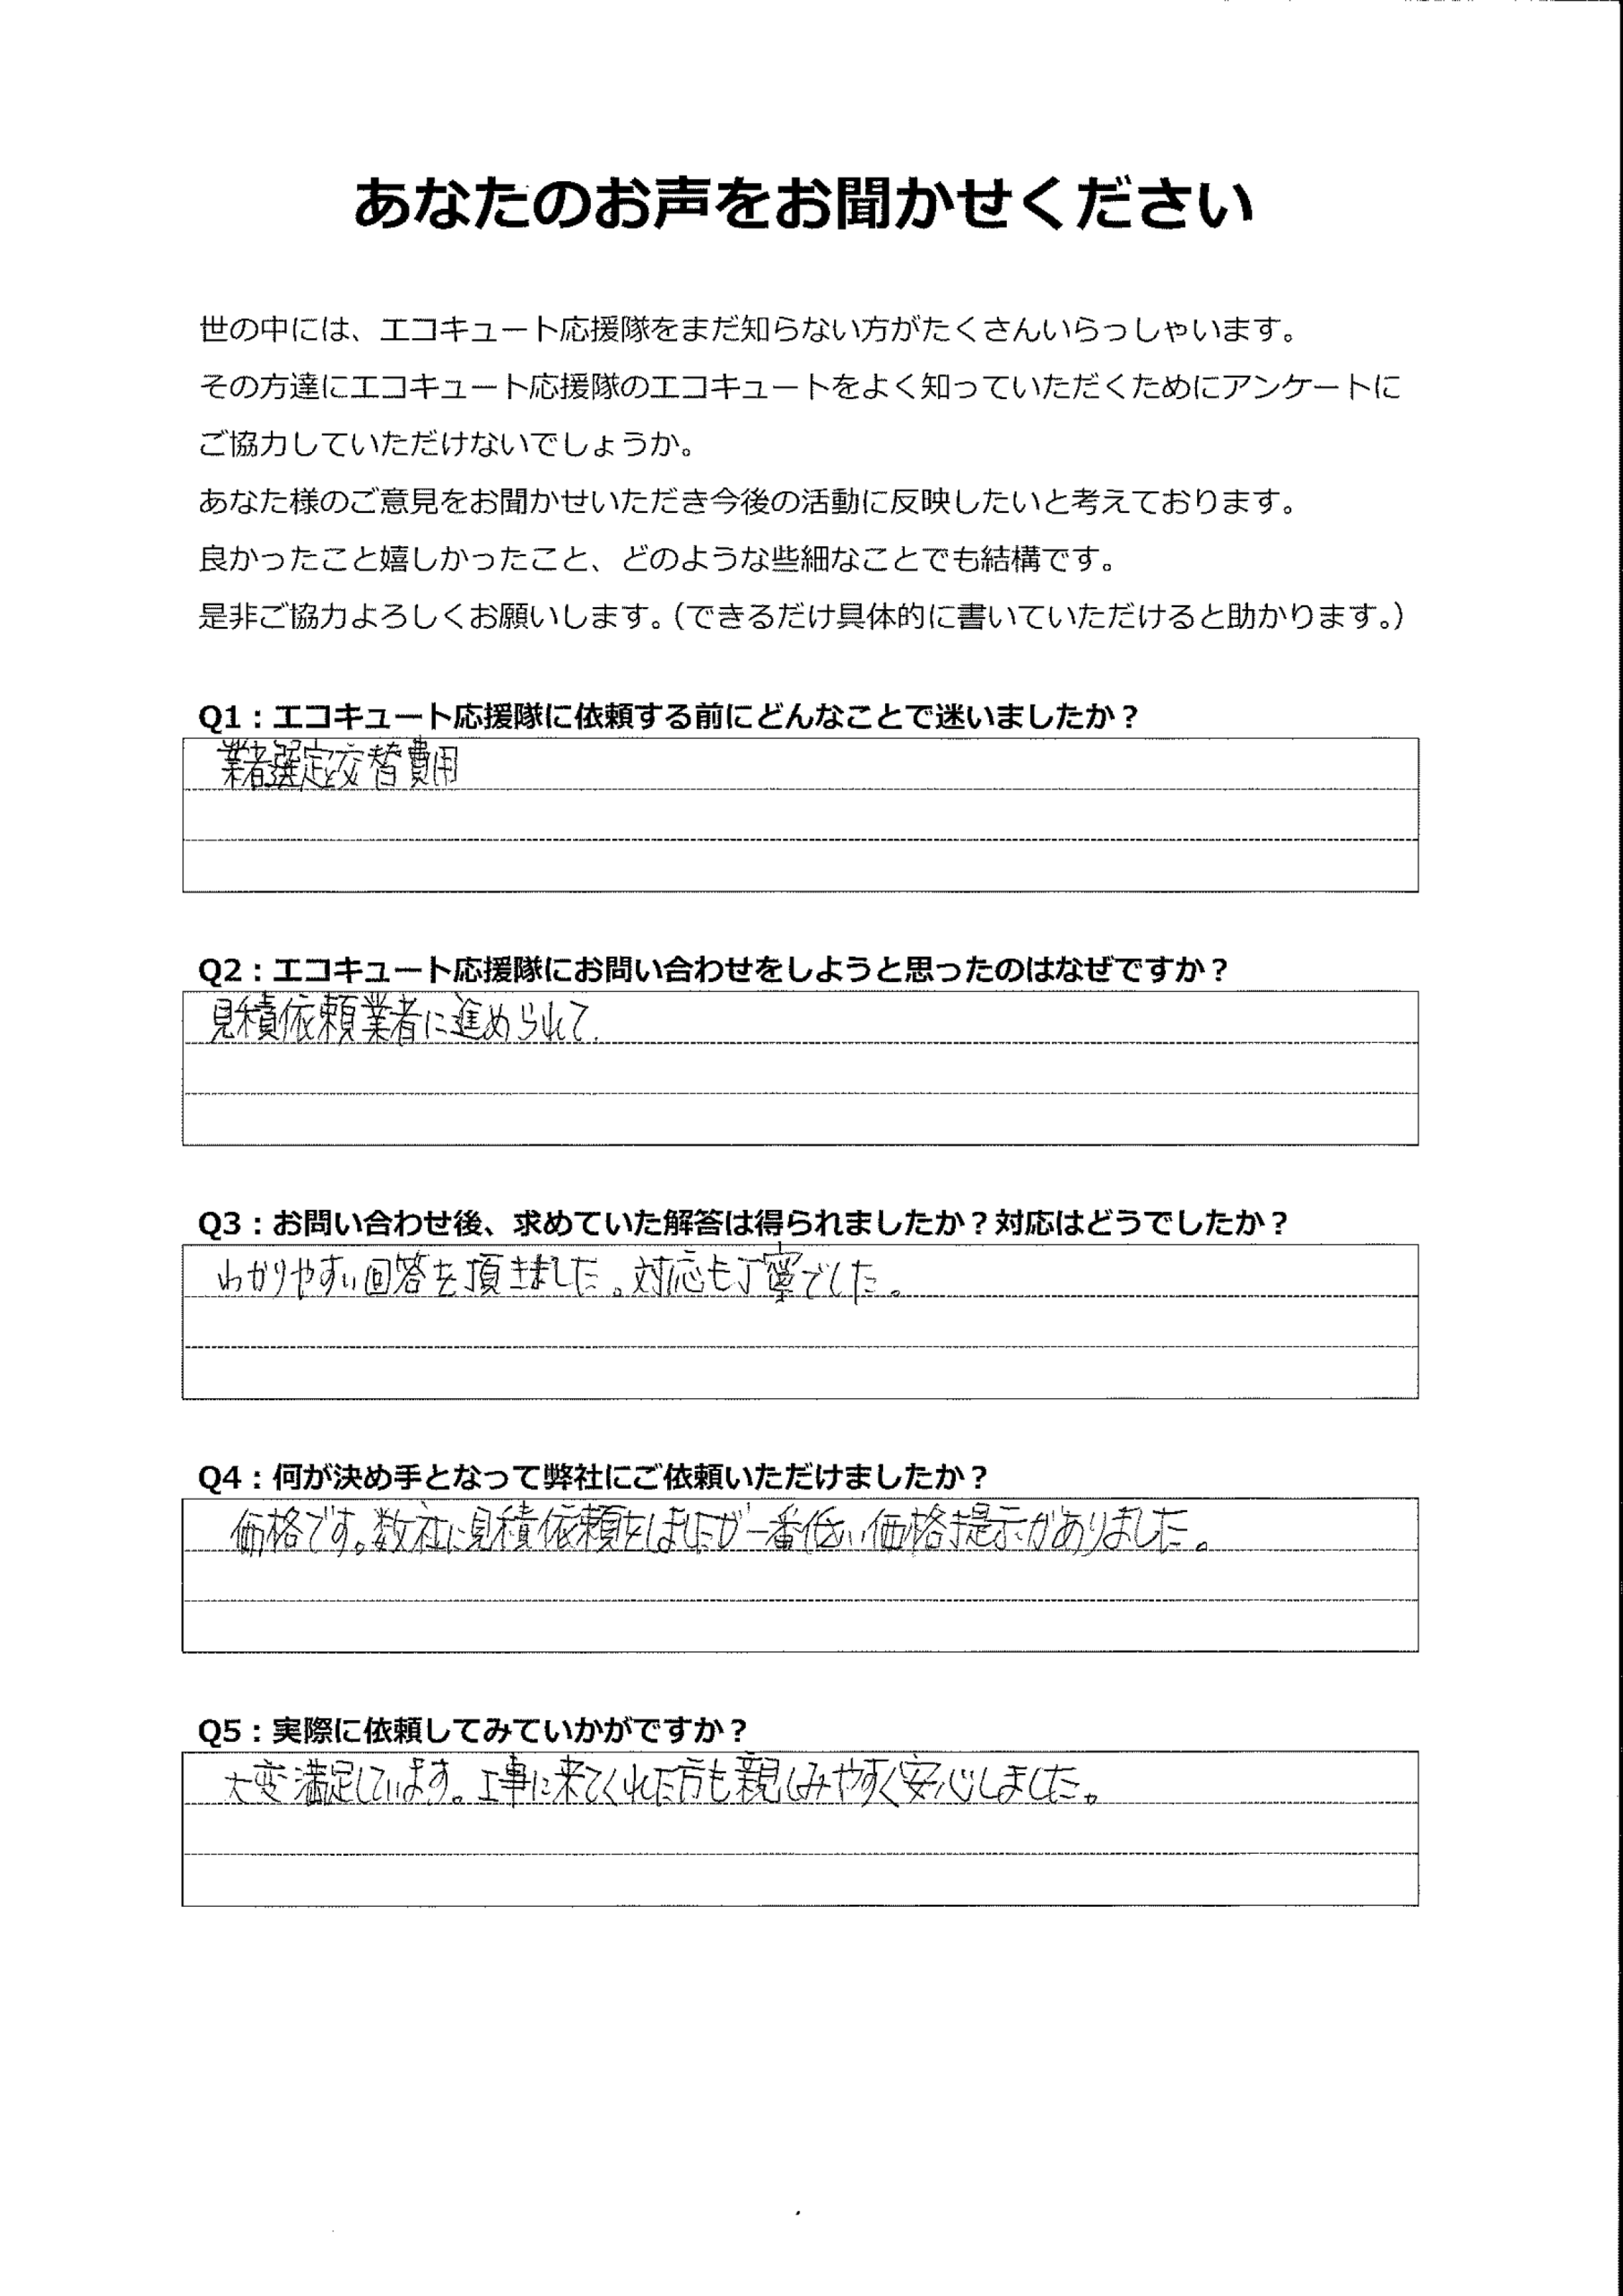 あなたのお声をお聞かせください
世の中には、エコキュート応援隊をまだ知らない方がたくさんいらっしゃいます。
その方達にエコキュート応援隊のエコキュートをよく知っていただくためにアンケートに
ご協力していただけないでしょうか。
あなた様のご意見をお聞かせいただき今後の活動に反映したいと考えております。
良かったこと嬉しかったこと、どのような些細なことでも結構です。
是非ご協力よろしくお願いします。（できるだけ具体的に書いていただけると助かります。）
Q1：エコキュート応援隊に依頼する前にどんなことで迷いましたか？
業者選定と交替費用
Q2：エコキュート応援隊にお問い合わせをしようと思ったのはなぜですか？
見積依頼業者に進められて.
Q3：お問い合わせ後、求めていた解答は得られましたか？対応はどうでしたか？
わかりやすい回答を頂きました。対応も丁寧でした。
Q4：何が決め手となって弊社にご依頼いただけましたか？
価格です。数社に見積依頼をしましたが一番低い価格提示がありました。
Q5：実際に依頼してみていかがですか？
大変満足しています。工事に来てくれた方も親しみやすく安心しました。